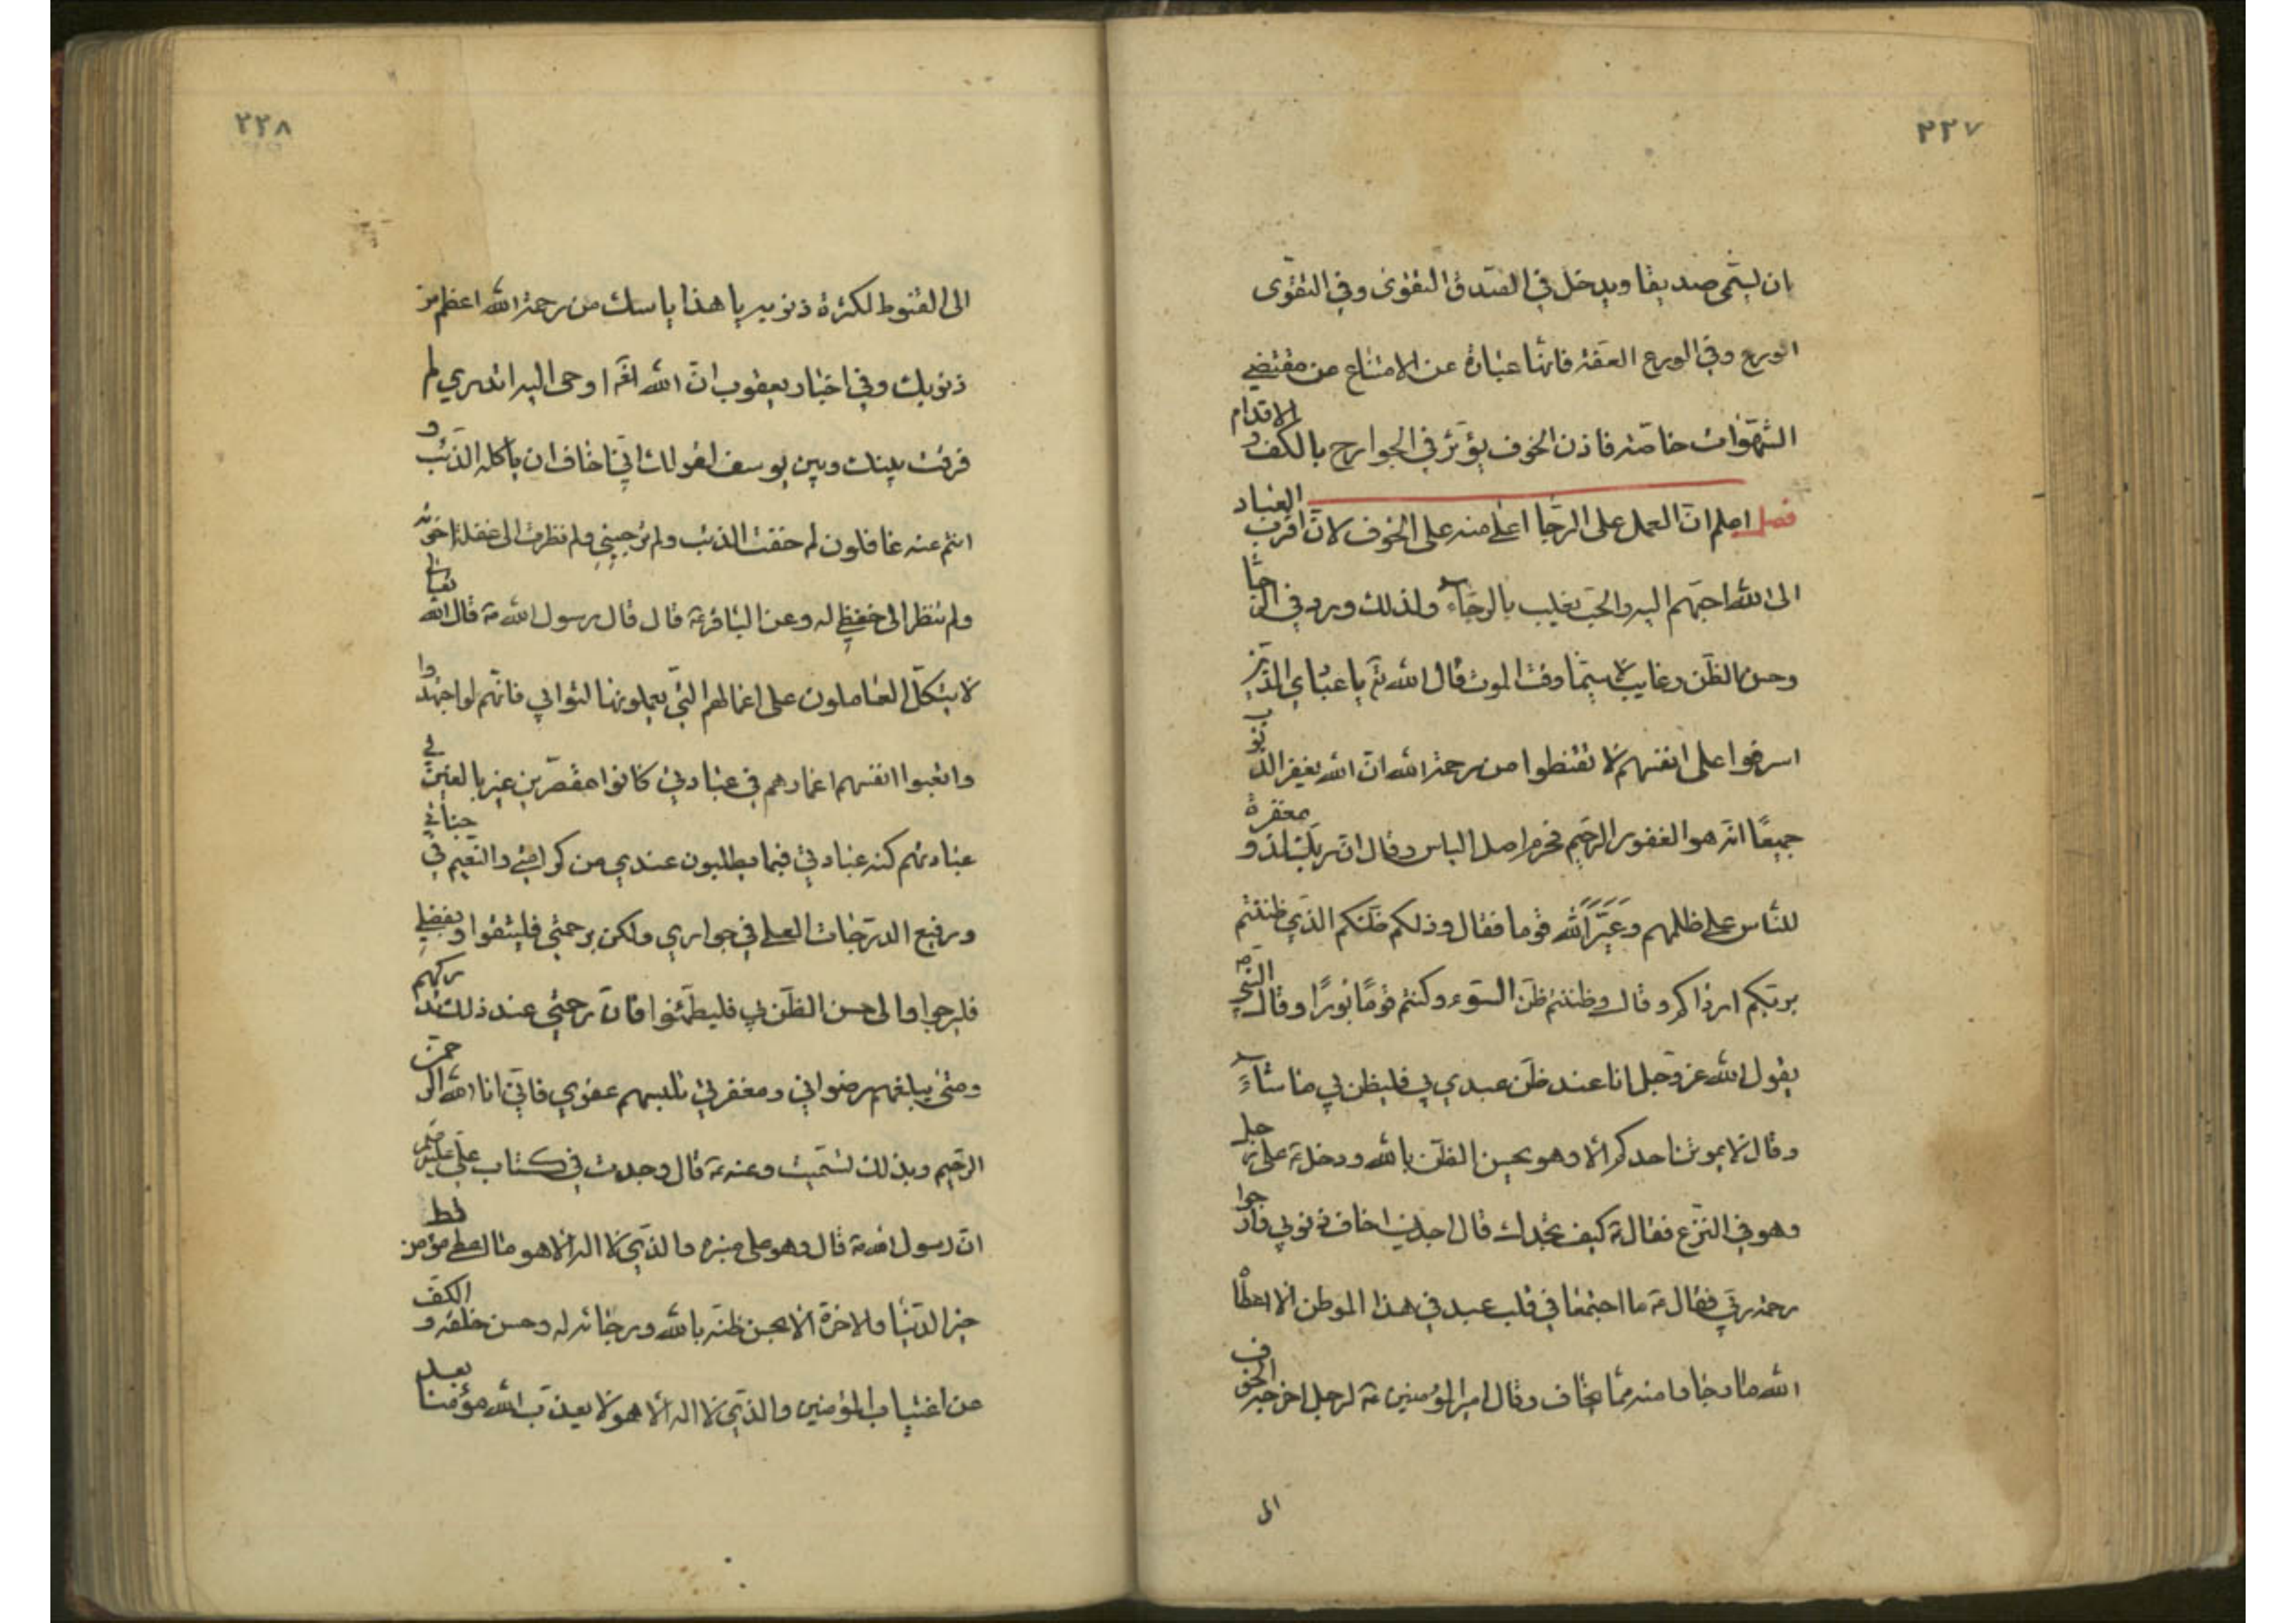 ٢٢٧
بان يسمى صديقا ويدخل في الصدق التقوى وفي التقوى
الورع وفي الورع العفة فانها عبارة عن الامتناع من مقتضى
الشهوات خاصة فاذن الخوف يؤثر في الجوارح بالكف و الاقدام
فصل اعلم ان العمل على الرجا اعلى منه على الخوف لان اقرب العباد
الى الله احبهم اليه والحب يغلب بالرجاء ولذلك ورد في الرجا
وحسن الظن رغايب لا سيما وقت الموت قال الله تع يا عبادي الذين
اسرفوا على انفسهم لا تقنطوا من رحمة الله ان الله يغفر الذنوب
جميعا انه هو الغفور الرحيم فحرم اصل الياس وقال ان ربك لذو مغفرة
للناس على ظلمهم وعير الله قوما فقال وذلكم ظنكم الذي ظننتم
بربكم ارداكم وقال وظننتم ظن السوء وكنتم قوما بورا وقال النبي ص
يقول الله عز وجل انا عند ظن عبدي بي فليظن بي ما شاء
وقال لا يموتن احدكم الا وهو يحسن الظن بالله ودخل ص على رجل
وهو في النزع فقال ص كيف تجدك قال اجدني اخاف ذنوبي وارجوا
رحمة ربي فقال ص ما اجتمعا في قلب عبد في هذا الموطن الا اعطاه
الله ما رجا وامنه مما يخاف وقال امير المؤمنين ع لرجل اخرجه الخوف
الى
٢٢٨
الى القنوط لكثرة ذنوبه يا هذا ياسك من رحمة الله اعظم من
ذنوبك وفي اخبار يعقوب ان الله تعه اوحى اليه اتدري لم
فرقت بينك وبين يوسف لقولك اني اخاف ان ياكله الذئب و
انتم عنه غافلون لم خفت الذئب ولم ترجني ولم نظرت الى غفلة اخوته
ولم تنظر الى حفظي له وعن الباقر ع قال قال رسول الله ص قال الله تعالى
لا يتكل العاملون على اعمالهم التي يعملونها لثوابي فانهم لو اجتهدوا
واتعبوا انفسهم اعمارهم في عبادتي كانوا مقصرين غير بالغين في
عبادتهم كنه عبادتي فيما يطلبون عندي من كرامتي والنعيم في جناتي
ورفيع الدرجات العلى في جواري ولكن برحمتي فليثقوا وبفضلي
فليرجوا والى حسن الظن بي فليطمئنوا فان رحمتي عند ذلك تدركهم
ومني يبلغهم رضواني ومغفرتي تلبسهم عفوي فاني انا الله الرحمن
الرحيم وبذلك تسميت وعنه ع قال وجدت في كتاب علي ع
ان رسول الله ص قال وهو على منبره والذي لا اله الا هو ما اعطي مؤمن قط
خير الدنيا والاخرة الا بحسن ظنه بالله ورجائه له وحسن خلقه و الكف
عن اغتياب المؤمنين والذي لا اله الا هو لا يعذب الله مؤمنا بعد